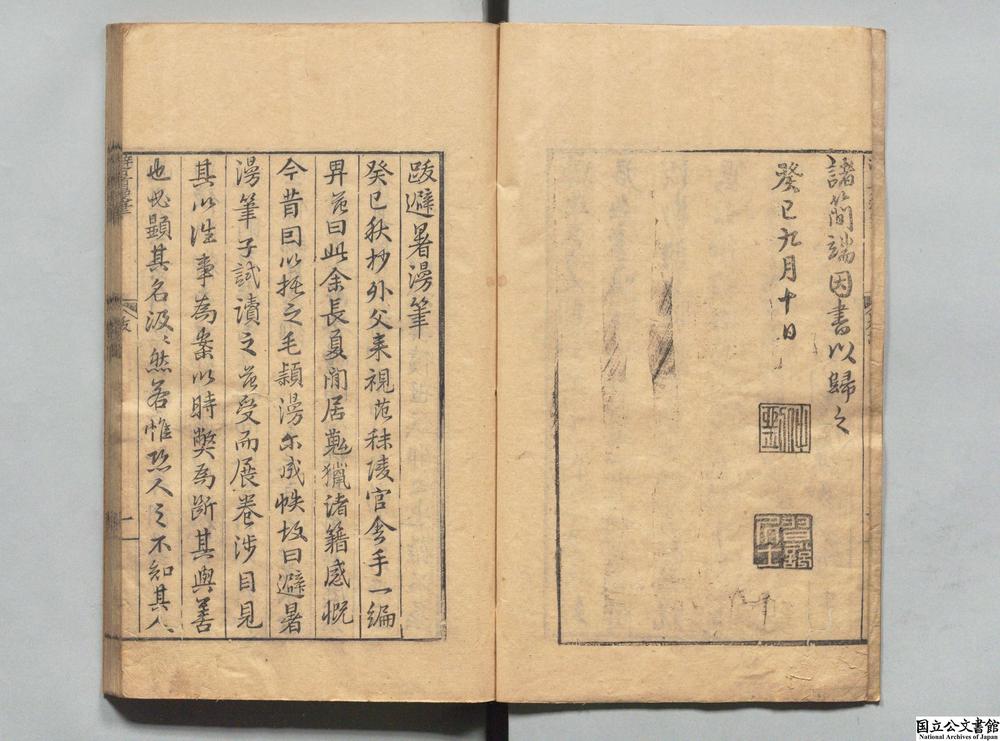 諸簡端因書以歸之
癸巳九月十日
跋避暑漫筆
癸巳秋抄外父来視范秣陵官舍手一編
畀范曰此余長夏閒居蒐獵诸籍感慨
今昔因以抒之毛穎漫尔成帙故曰避暑
漫筆子試讀之范受而展卷涉目見
其以徃事為案以時獘為斷其與善
也必顯其名汲〻然若惟恐人之不知其人
避暑漫筆
跋
一
国立公文書館
National Archives of Japan